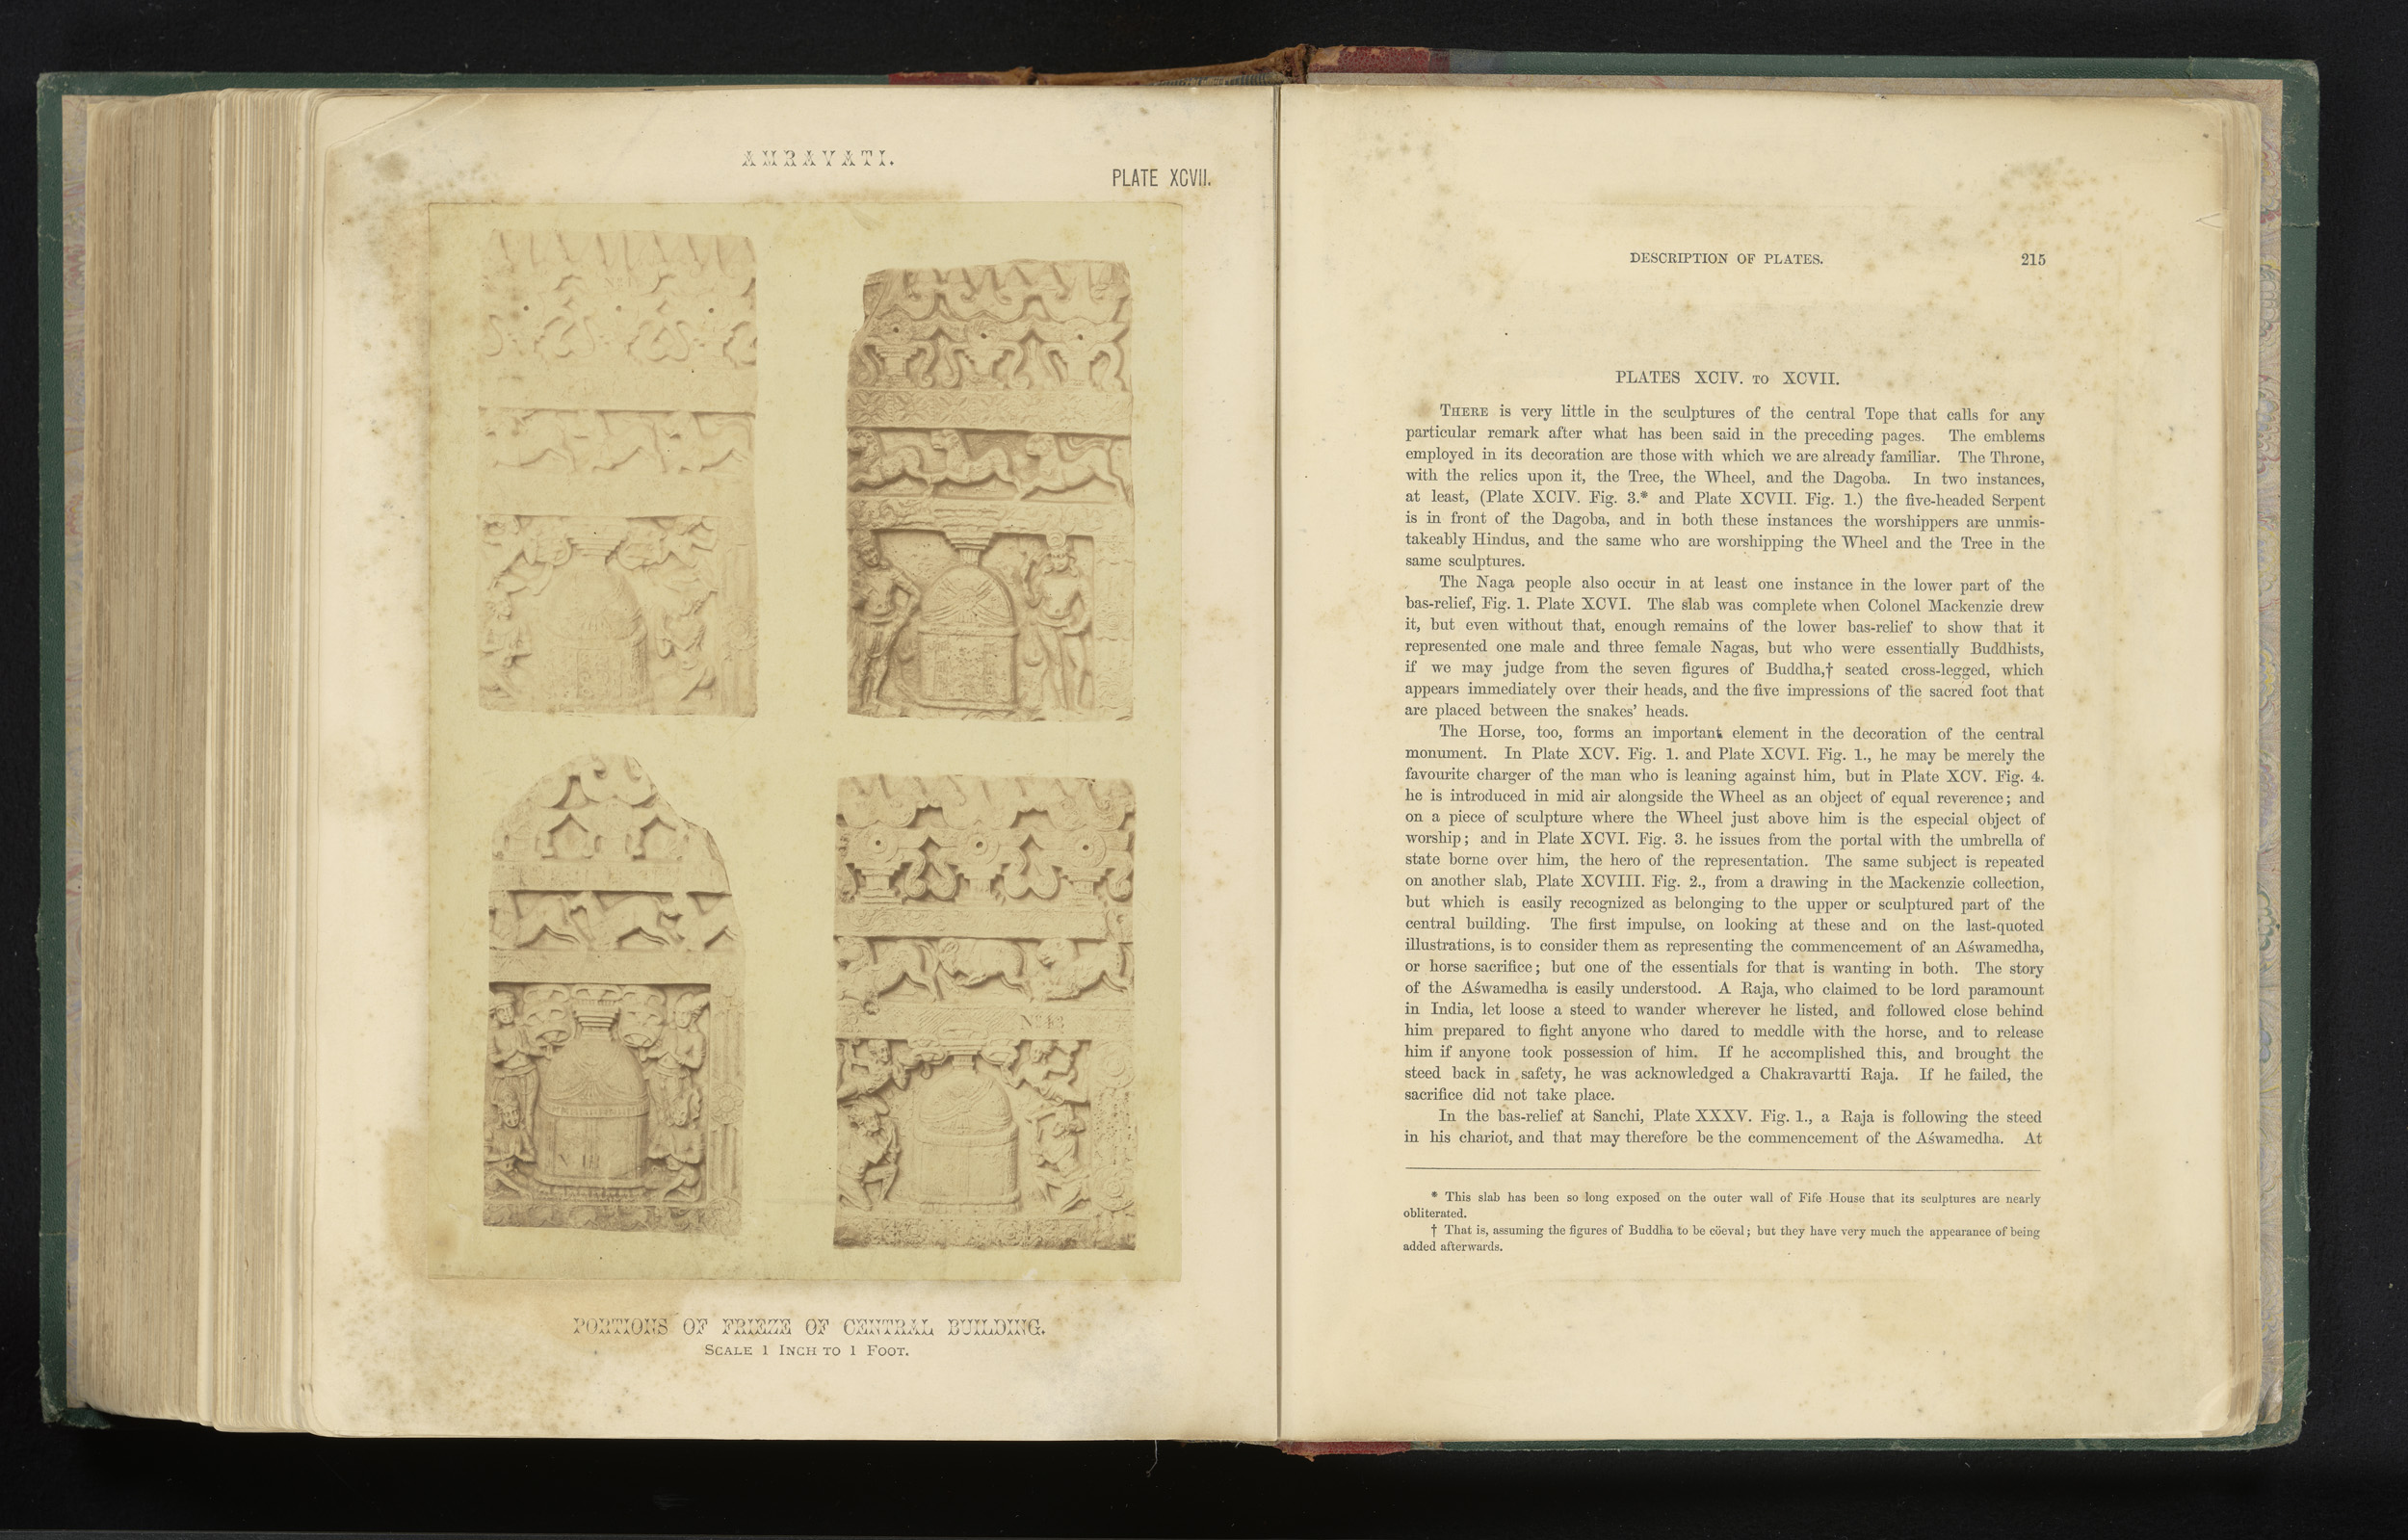 AMRAVATI.
PLATE XCVII.
Nº 43
PORTIONS OF FRIEZE OF CENTRAL BUILDING.
SCALE 1 INCH TO 1 FOOT.
DESCRIPTION OF PLATES. 215
PLATES XCIV. TO XCVII.
THERE is very little in the sculptures of the central Tope that calls for any
particular remark after what has been said in the preceding pages. The emblems
employed in its decoration are those with which we are already familiar. The Throne,
with the relics upon it, the Tree, the Wheel, and the Dagoba. In two instances,
at least, (Plate XCIV. Fig. 3.* and Plate XCVII. Fig. 1.) the five-headed Serpent
is in front of the Dagoba, and in both these instances the worshippers are unmis-
takeably Hindus, and the same who are worshipping the Wheel and the Tree in the
same sculptures.
The Naga people also occur in at least one instance in the lower part of the
bas-relief, Fig. 1. Plate XCVI. The slab was complete when Colonel Mackenzie drew
it, but even without that, enough remains of the lower bas-relief to show that it
represented one male and three female Nagas, but who were essentially Buddhists,
if we may judge from the seven figures of Buddha,† seated cross-legged, which
appears immediately over their heads, and the five impressions of the sacred foot that
are placed between the snakes' heads.
The Horse, too, forms an important element in the decoration of the central
monument. In Plate XCV. Fig. 1. and Plate XCVI. Fig. 1., he may be merely the
favourite charger of the man who is leaning against him, but in Plate XCV. Fig. 4.
he is introduced in mid air alongside the Wheel as an object of equal reverence; and
on a piece of sculpture where the Wheel just above him is the especial object of
worship; and in Plate XCVI. Fig. 3. he issues from the portal with the umbrella of
state borne over him, the hero of the representation. The same subject is repeated
on another slab, Plate XCVIII. Fig. 2., from a drawing in the Mackenzie collection,
but which is easily recognized as belonging to the upper or sculptured part of the
central building. The first impulse, on looking at these and on the last-quoted
illustrations, is to consider them as representing the commencement of an Aśwamedha,
or horse sacrifice; but one of the essentials for that is wanting in both. The story
of the Aśwamedha is easily understood. A Raja, who claimed to be lord paramount
in India, let loose a steed to wander wherever he listed, and followed close behind
him prepared to fight anyone who dared to meddle with the horse, and to release
him if anyone took possession of him. If he accomplished this, and brought the
steed back in safety, he was acknowledged a Chakravartti Raja. If he failed, the
sacrifice did not take place.
In the bas-relief at Sanchi, Plate XXXV. Fig. 1., a Raja is following the steed
in his chariot, and that may therefore be the commencement of the Aśwamedha. At
* This slab has been so long exposed on the outer wall of Fife House that its sculptures are nearly
obliterated.
† That is, assuming the figures of Buddha to be cöeval; but they have very much the appearance of being
added afterwards.